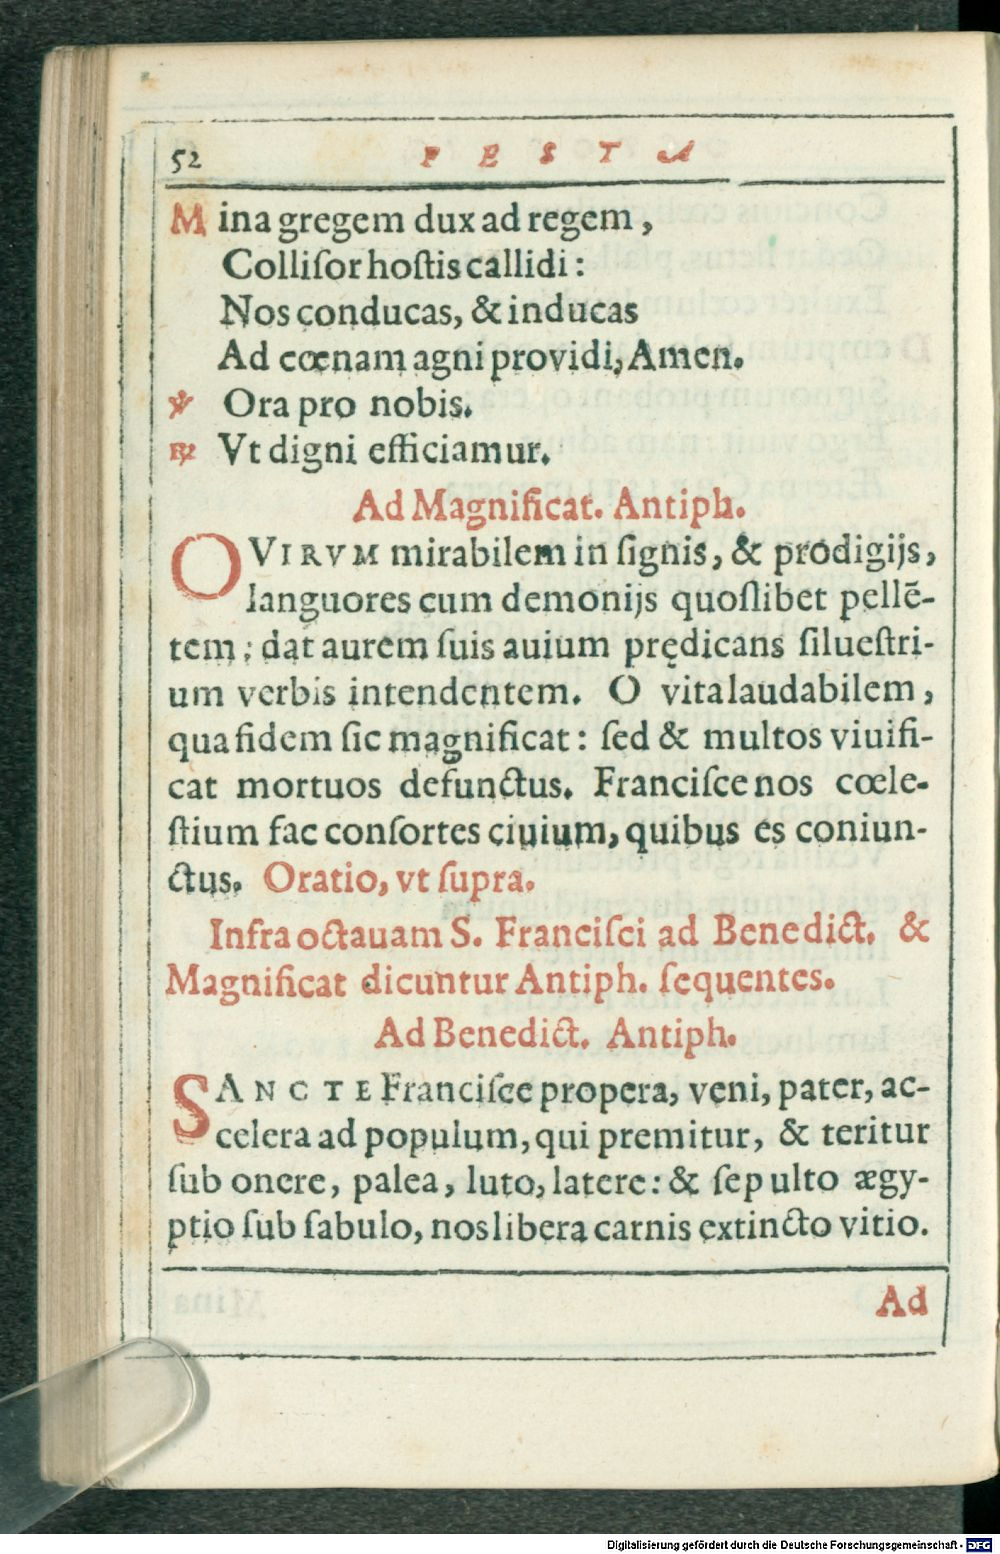 52 FESTA
Mina gregem dux ad regem,
Colliſor hoſtis callidi:
Nos conducas, & inducas
Ad cœnam agni providi, Amen.
℣ Ora pro nobis.
℟ Vt digni efficiamur.
Ad Magnificat. Antiph.
O VIRVM mirabilem in ſignis, & prodigijs,
languores cum demonijs quoſlibet pellẽ-
tem; dat aurem ſuis auium prędicans ſilueſtri-
um verbis intendentem. O vita laudabilem,
qua fidem ſic magnificat: ſed & multos viuifi-
cat mortuos defunctus. Franciſce nos cœle-
ſtium fac conſortes ciuium, quibus es coniun-
ctus. Oratio, vt ſupra.
Infra octauam S. Franciſci ad Benedict. &
Magnificat dicuntur Antiph. ſequentes.
Ad Benedict. Antiph.
SANCTE Franciſce propera, veni, pater, ac-
celera ad populum, qui premitur, & teritur
ſub onere, palea, luto, latere: & ſepulto ægy-
ptio ſub ſabulo, nos libera carnis extincto vitio.
Ad
Digitalisierung gefördert durch die Deutsche Forschungsgemeinschaft - DFG